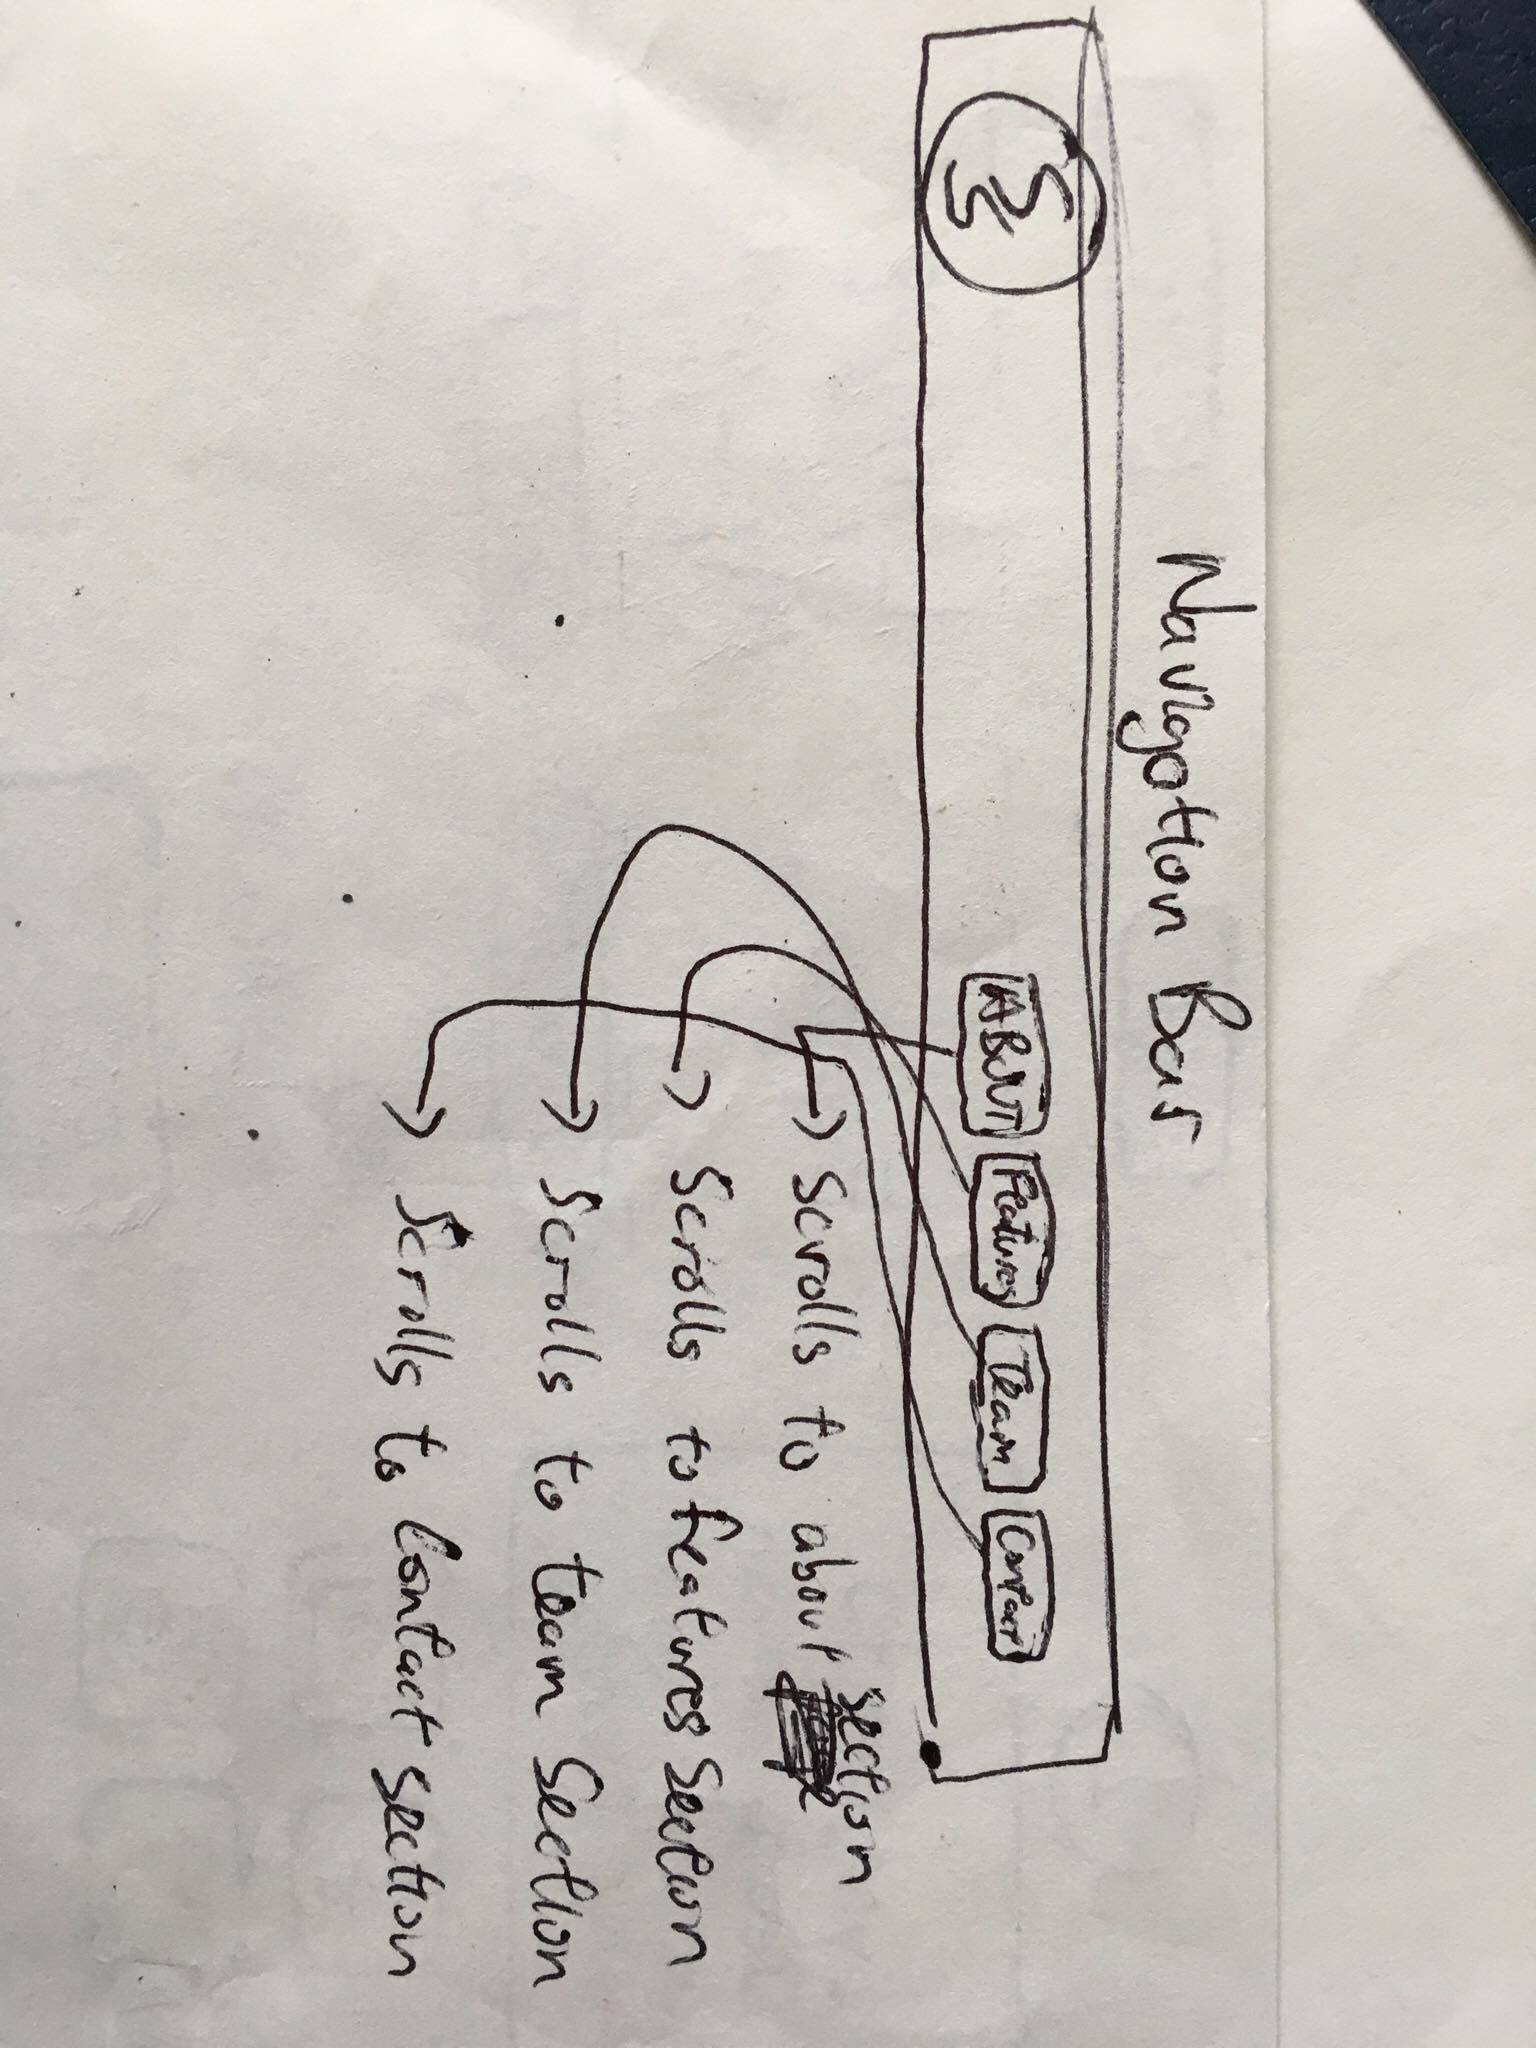 Navigation Bar
ABOUT Features Team Contact
Scrolls to about section
Scrolls to features Section
Scrolls to team Section
Scrolls to Contact section